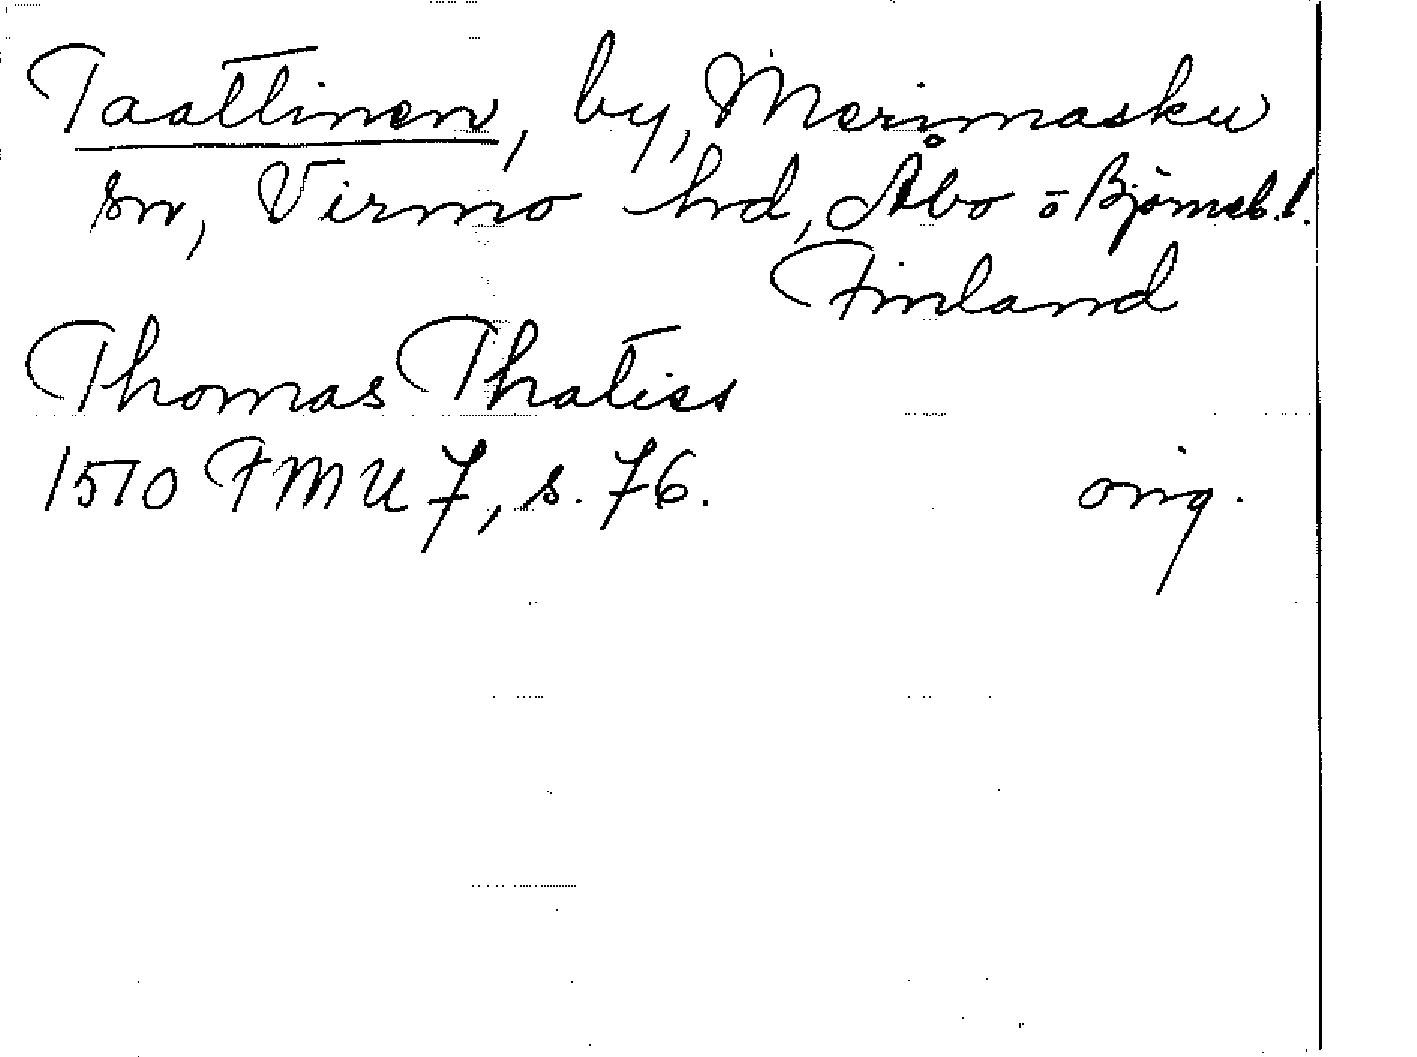 Taattinen, by, Merimasku
sn, Virmo hrd, Åbo o Björneb. l.
Finland
Thomas Thatiss
1510 FMU 7, s. 76.
orig.